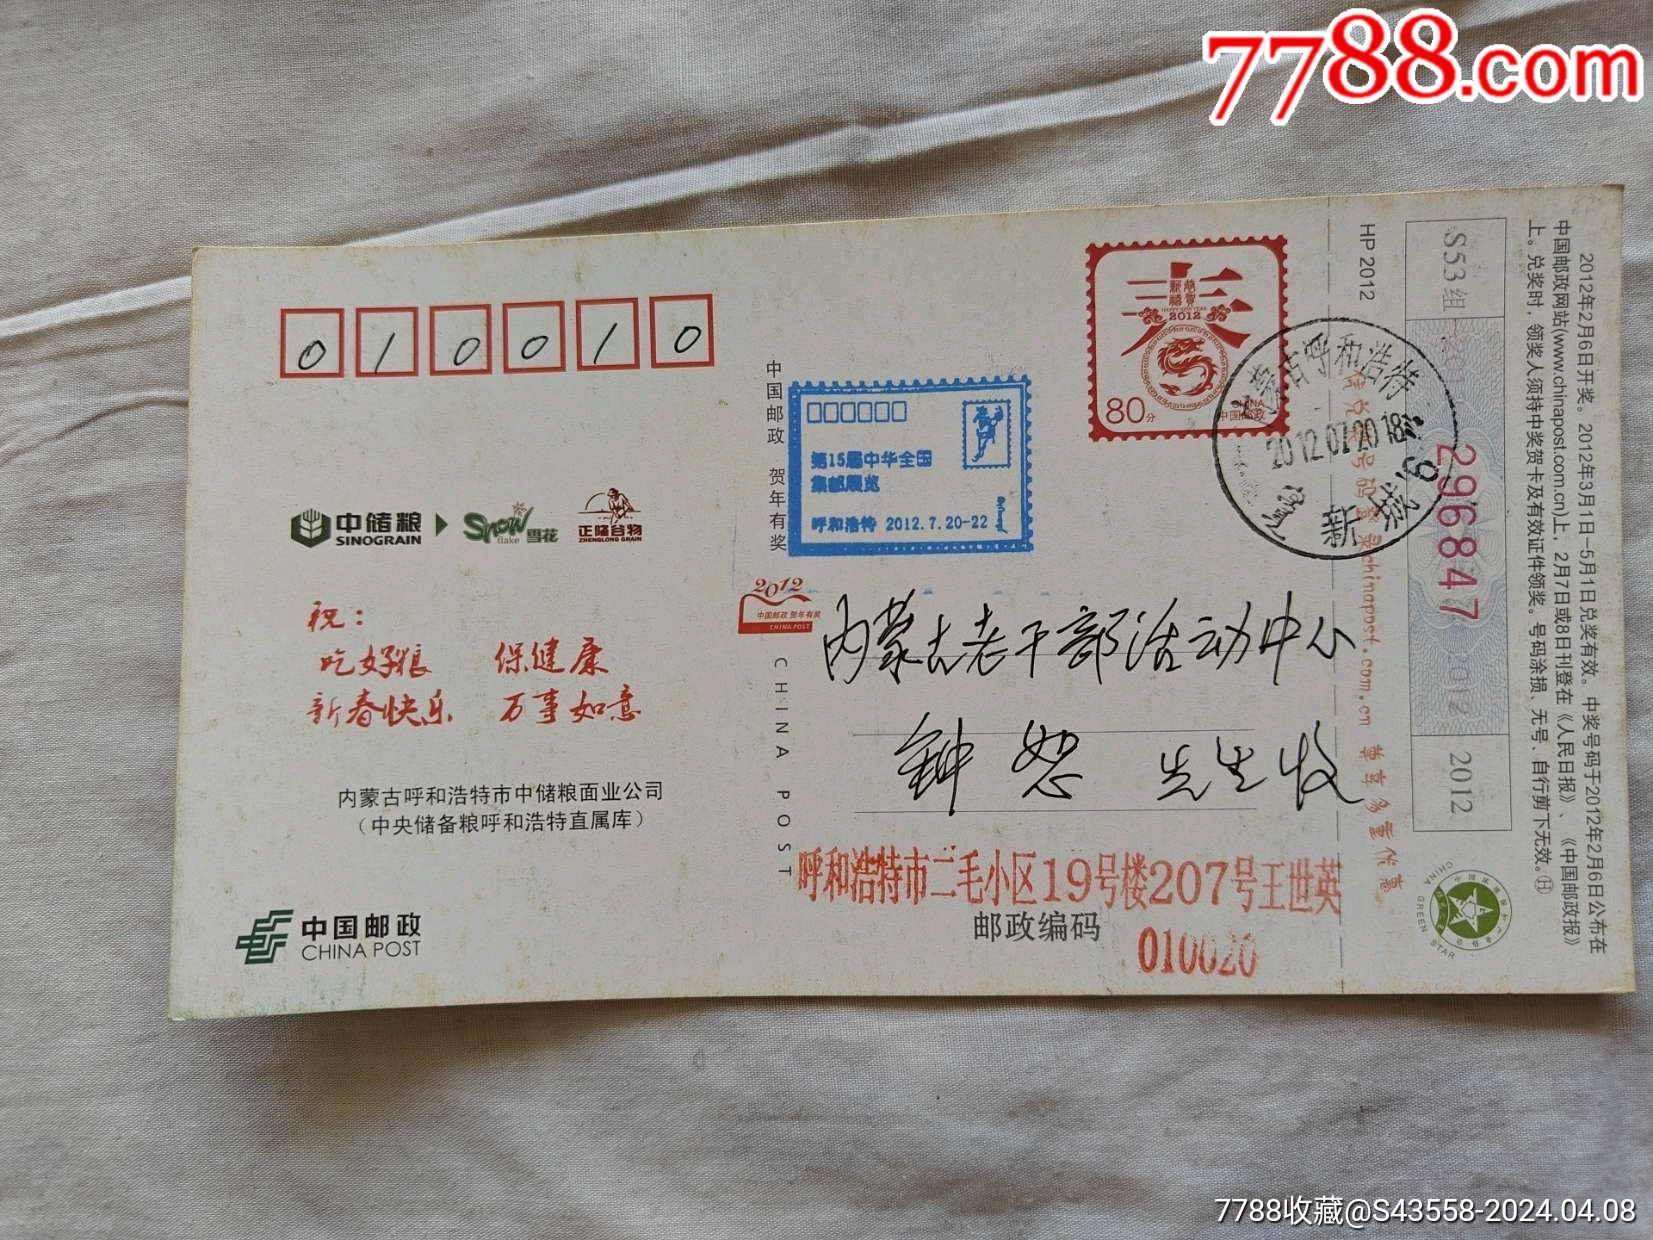 7788.com
010010
中国邮政 贺年有奖
CHINA POST
春
恭贺新禧
HAPPY NEW YEAR
2012
80分
CHINA
中国邮政
第15届中华全国
集邮展览
呼和浩特 2012.7.20-22
内蒙古呼和浩特
2012.07.20 18
新城
HP 2012
S53组
296847
2012
2012
2012年2月6日开奖。2012年3月1日-5月1日兑奖有效。中奖号码于2012年2月6日公布在
中国邮政网站(www.chinapost.com.cn)上，2月7日或8日刊登在《人民日报》、《中国邮政报》
上。兑奖时，领奖人须持中奖贺卡及有效证件领奖。号码涂损、无号、自行剪下无效。
chinapost.com.cn 尊享多重优惠
中储粮
SINOGRAIN
Snow
flake
雪花
正隆谷物
ZHENGLONG GRAIN
祝：
吃好粮 保健康
新春快乐 万事如意
内蒙古呼和浩特市中储粮面业公司
（中央储备粮呼和浩特直属库）
中国邮政
CHINA POST
2012
中国邮政 贺年有奖
CHINA POST
内蒙古老干部活动中心
钟恕 先生收
呼和浩特市二毛小区19号楼207号王世英
邮政编码
010020
CHINA GREEN STAR
7788收藏@S43558-2024.04.08